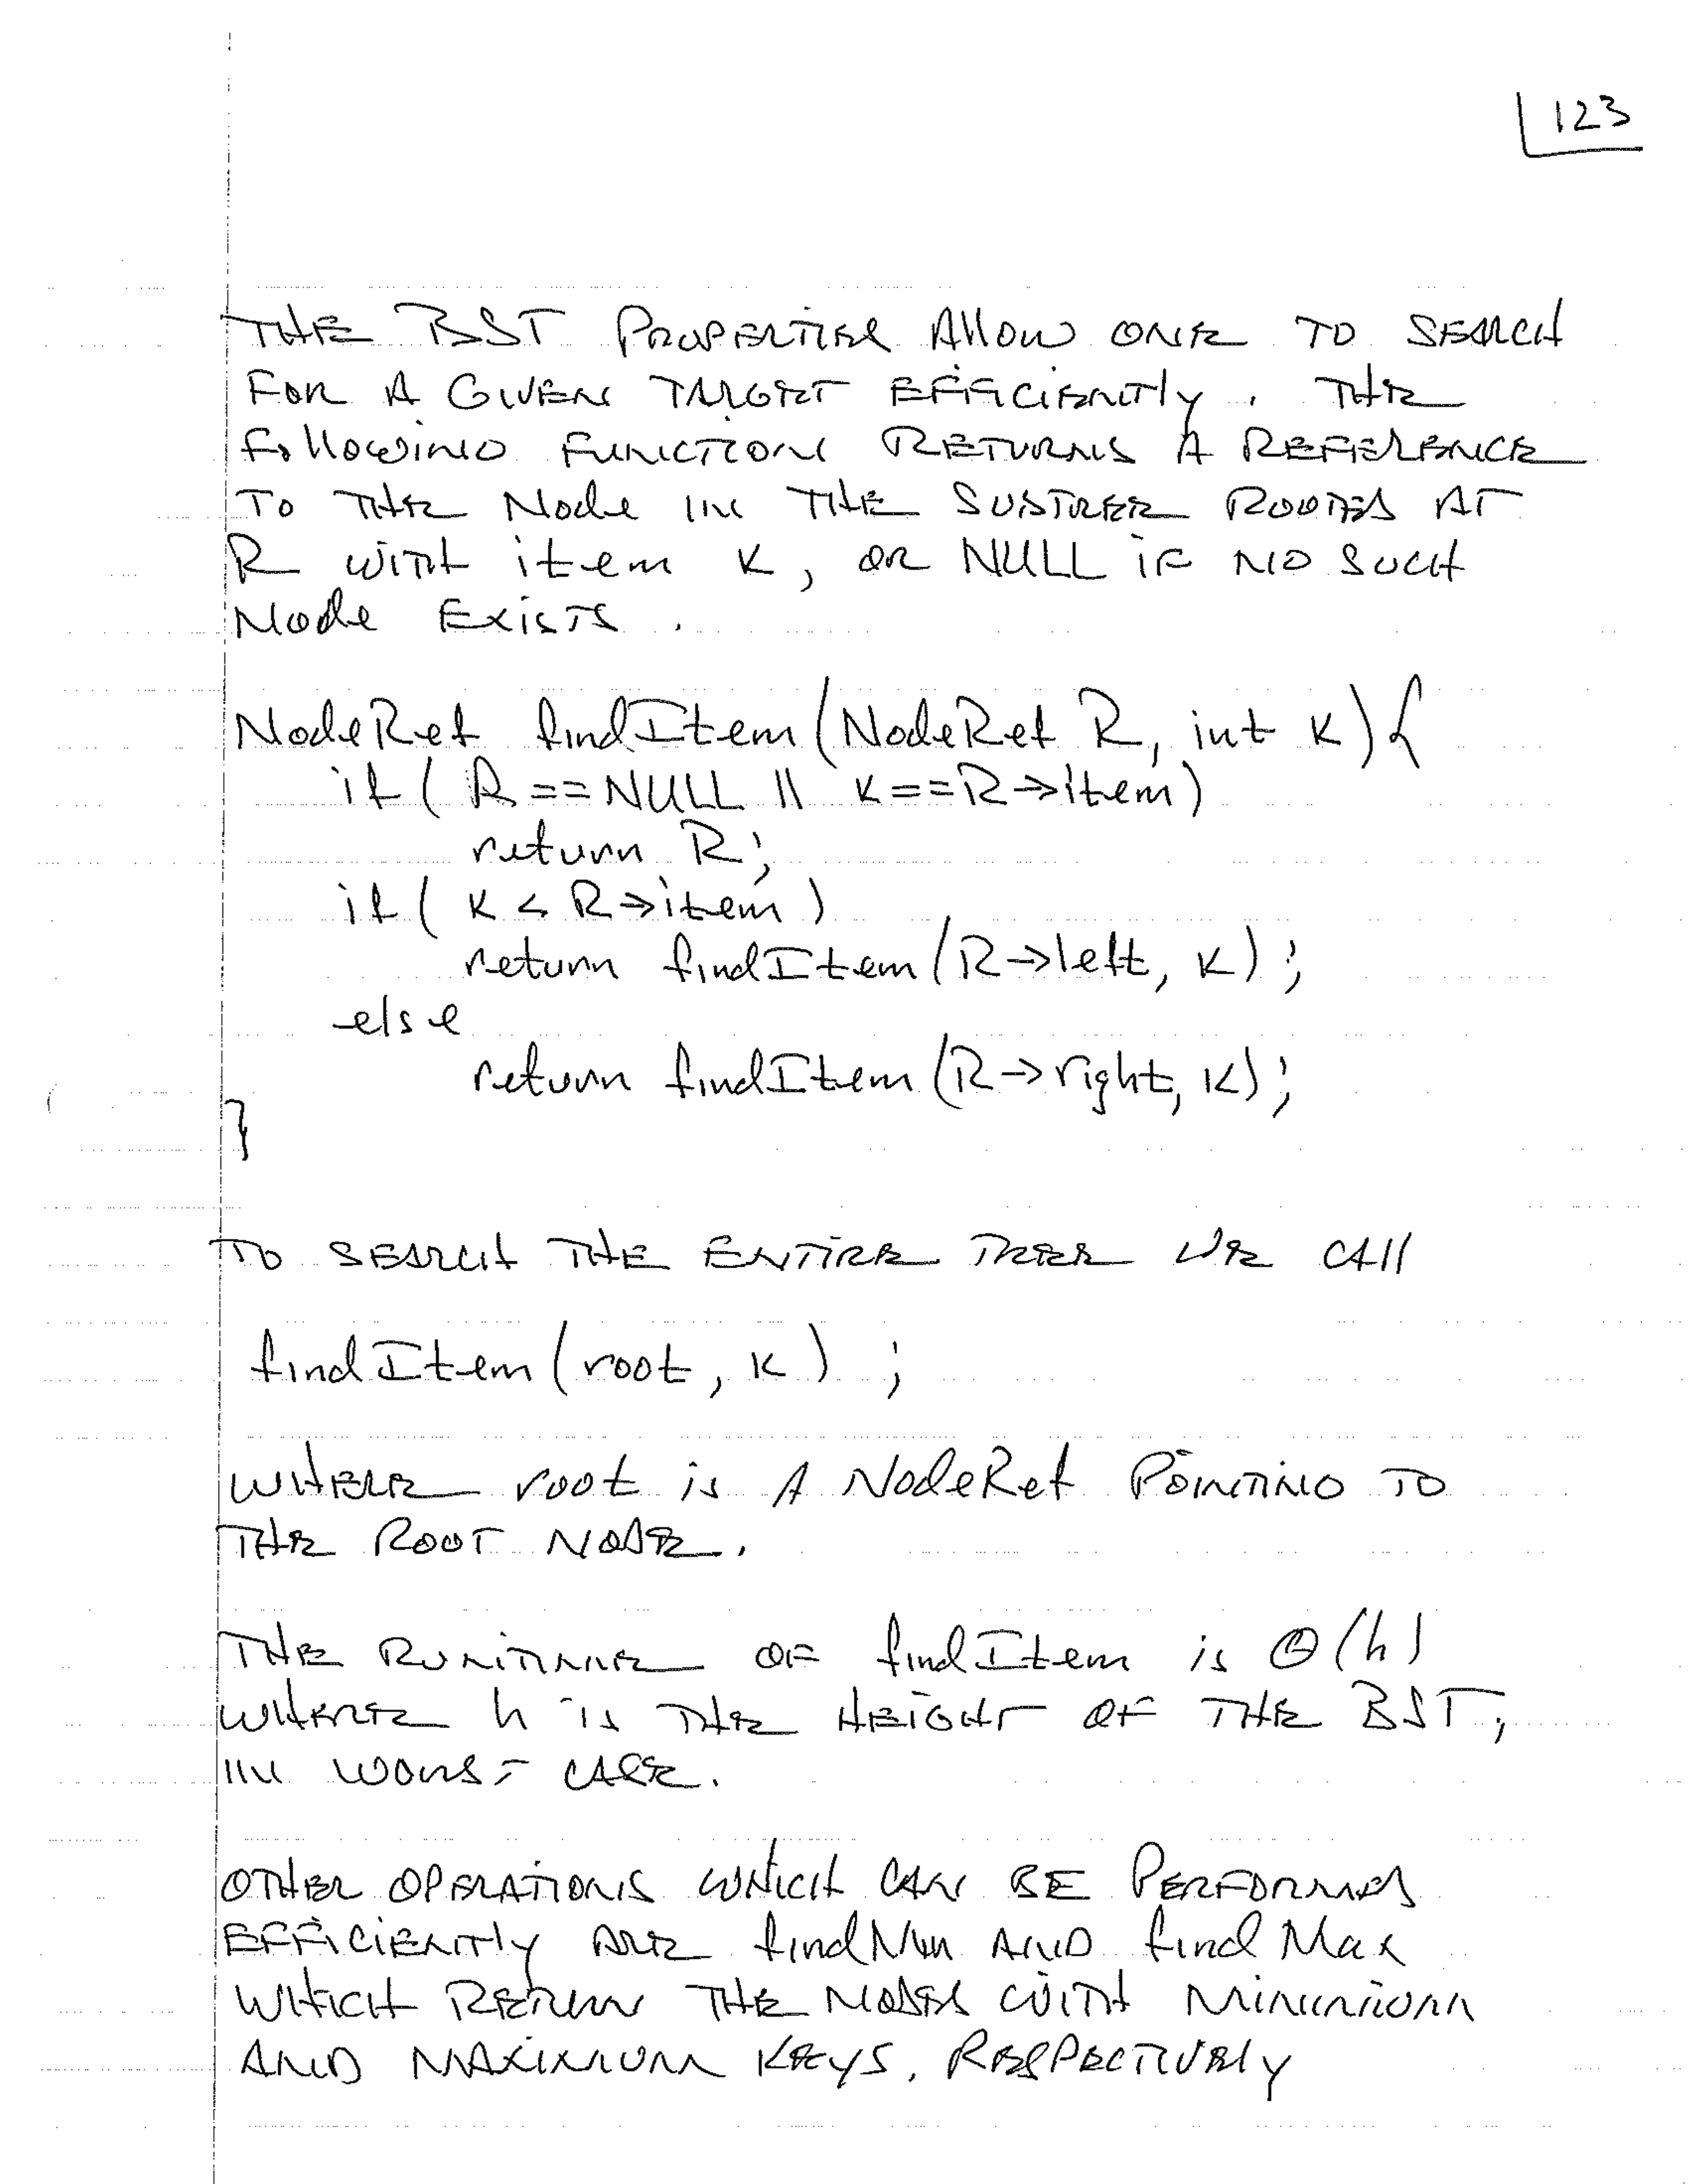 123
THE BST PROPERTIES ALLOW ONE TO SEARCH
FOR A GIVEN TARGET EFFICIENTLY. THE
FOLLOWING FUNCTION RETURNS A REFERENCE
TO THE Node IN THE SUBTREE ROOTED AT
R WITH item K, OR NULL IF NO SUCH
Node EXISTS.
NodeRef findItem(NodeRef R, int K){
if( R==NULL || K==R->item)
return R;
if( K < R->item )
return findItem(R->left, K);
else
return findItem(R->right, K);
}
TO SEARCH THE ENTIRE TREE WE CALL
findItem(root, K) ;
WHERE root is A NodeRef POINTING TO
THE ROOT NODE.
THE RUNTIME OF findItem is Θ(h)
WHERE h is THE HEIGHT OF THE BST,
IN WORST CASE.
OTHER OPERATIONS WHICH CAN BE PERFORMED
EFFICIENTLY ARE findMin AND findMax
WHICH RETURN THE NODES WITH MINIMUM
AND MAXIMUM KEYS, RESPECTIVELY